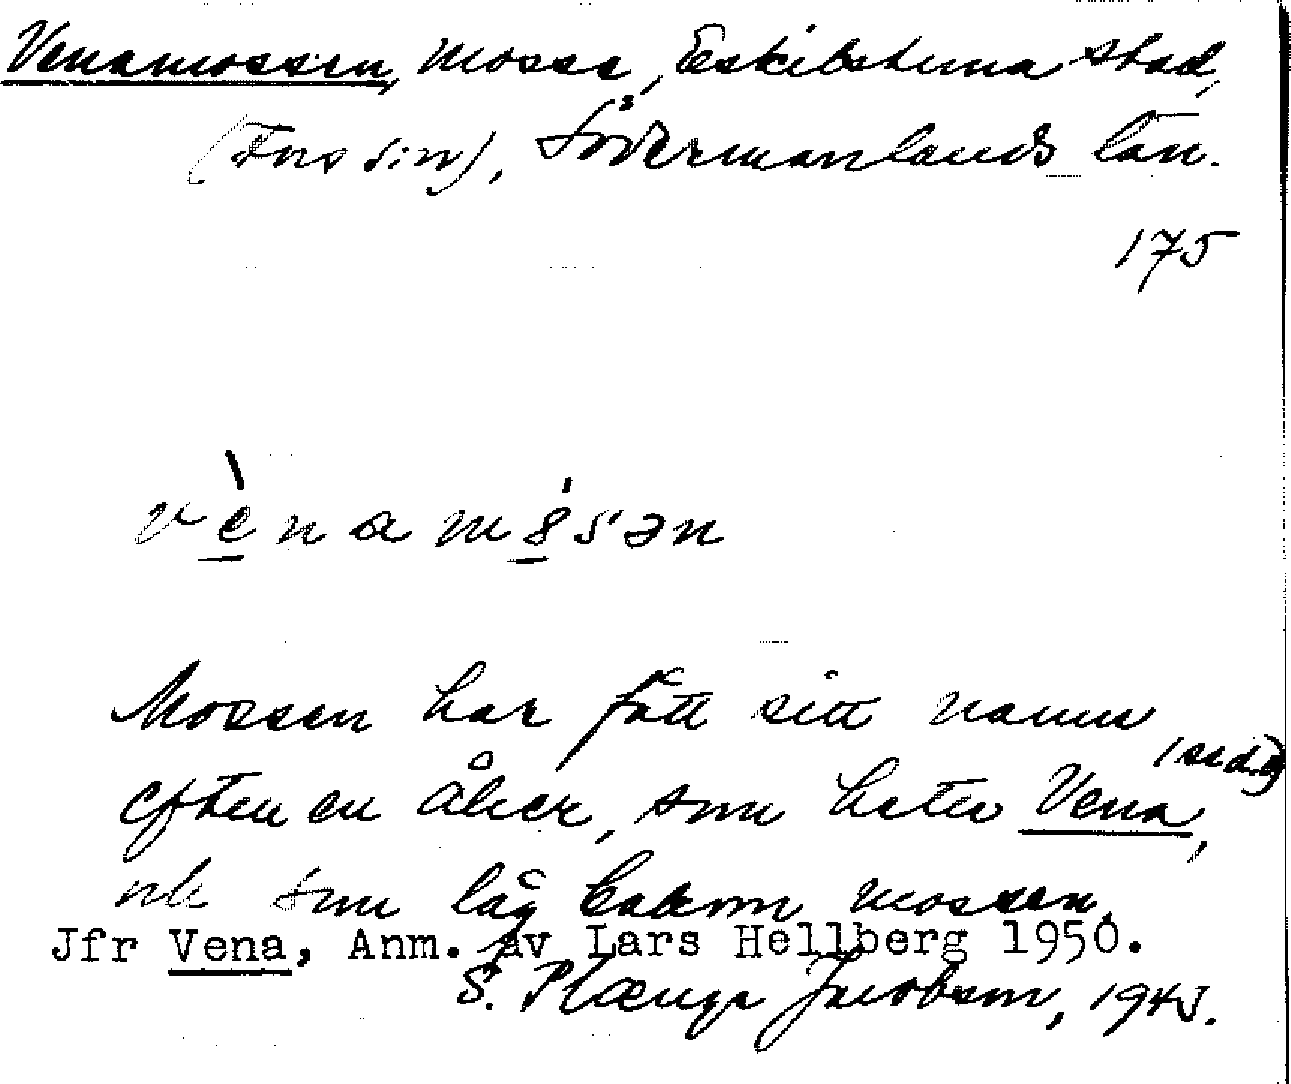 Venamossen, mosse, Eskilstuna stad,
(Fors sn), Södermanlands län.
175
vènamósən
Mossen har fått sitt namn
efter en åker, som heter Vena,
(se d.o)
och som låg bakom mossen.
Jfr Vena, Anm. av Lars Hellberg 1950.
S. Plænge Jacobson, 1945.